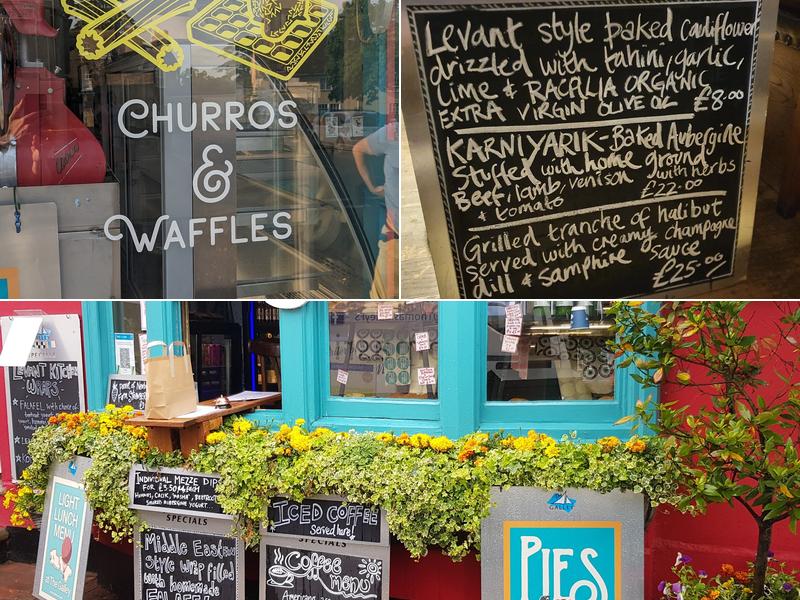 CHURROS
&
WAFFLES
Levant style baked Cauliflower
drizzled with tahini, garlic,
lime & RACALIA ORGANIC
EXTRA VIRGIN OLIVE OIL £8.00
KARNIYARIK-Baked Aubergine
Stuffed with home ground
Beef, lamb, venison with herbs
& tomato £22.00
Grilled tranche of halibut
served with creamy champagne
dill & samphire sauce
£25.00
LEVANT KITCHEN
WRAPS
FALAFEL with choice of
LIGHT
LUNCH
MENU
at The Galley
INDIVIDUAL MEZZE DIPS
FOR £3.50
SPECIALS
Middle Eastern
style wrap filled
with homemade
FALAFEL
ICED COFFEE
Served here!
SPECIALS
Coffee
menu
Americano
GALLEY
PIES